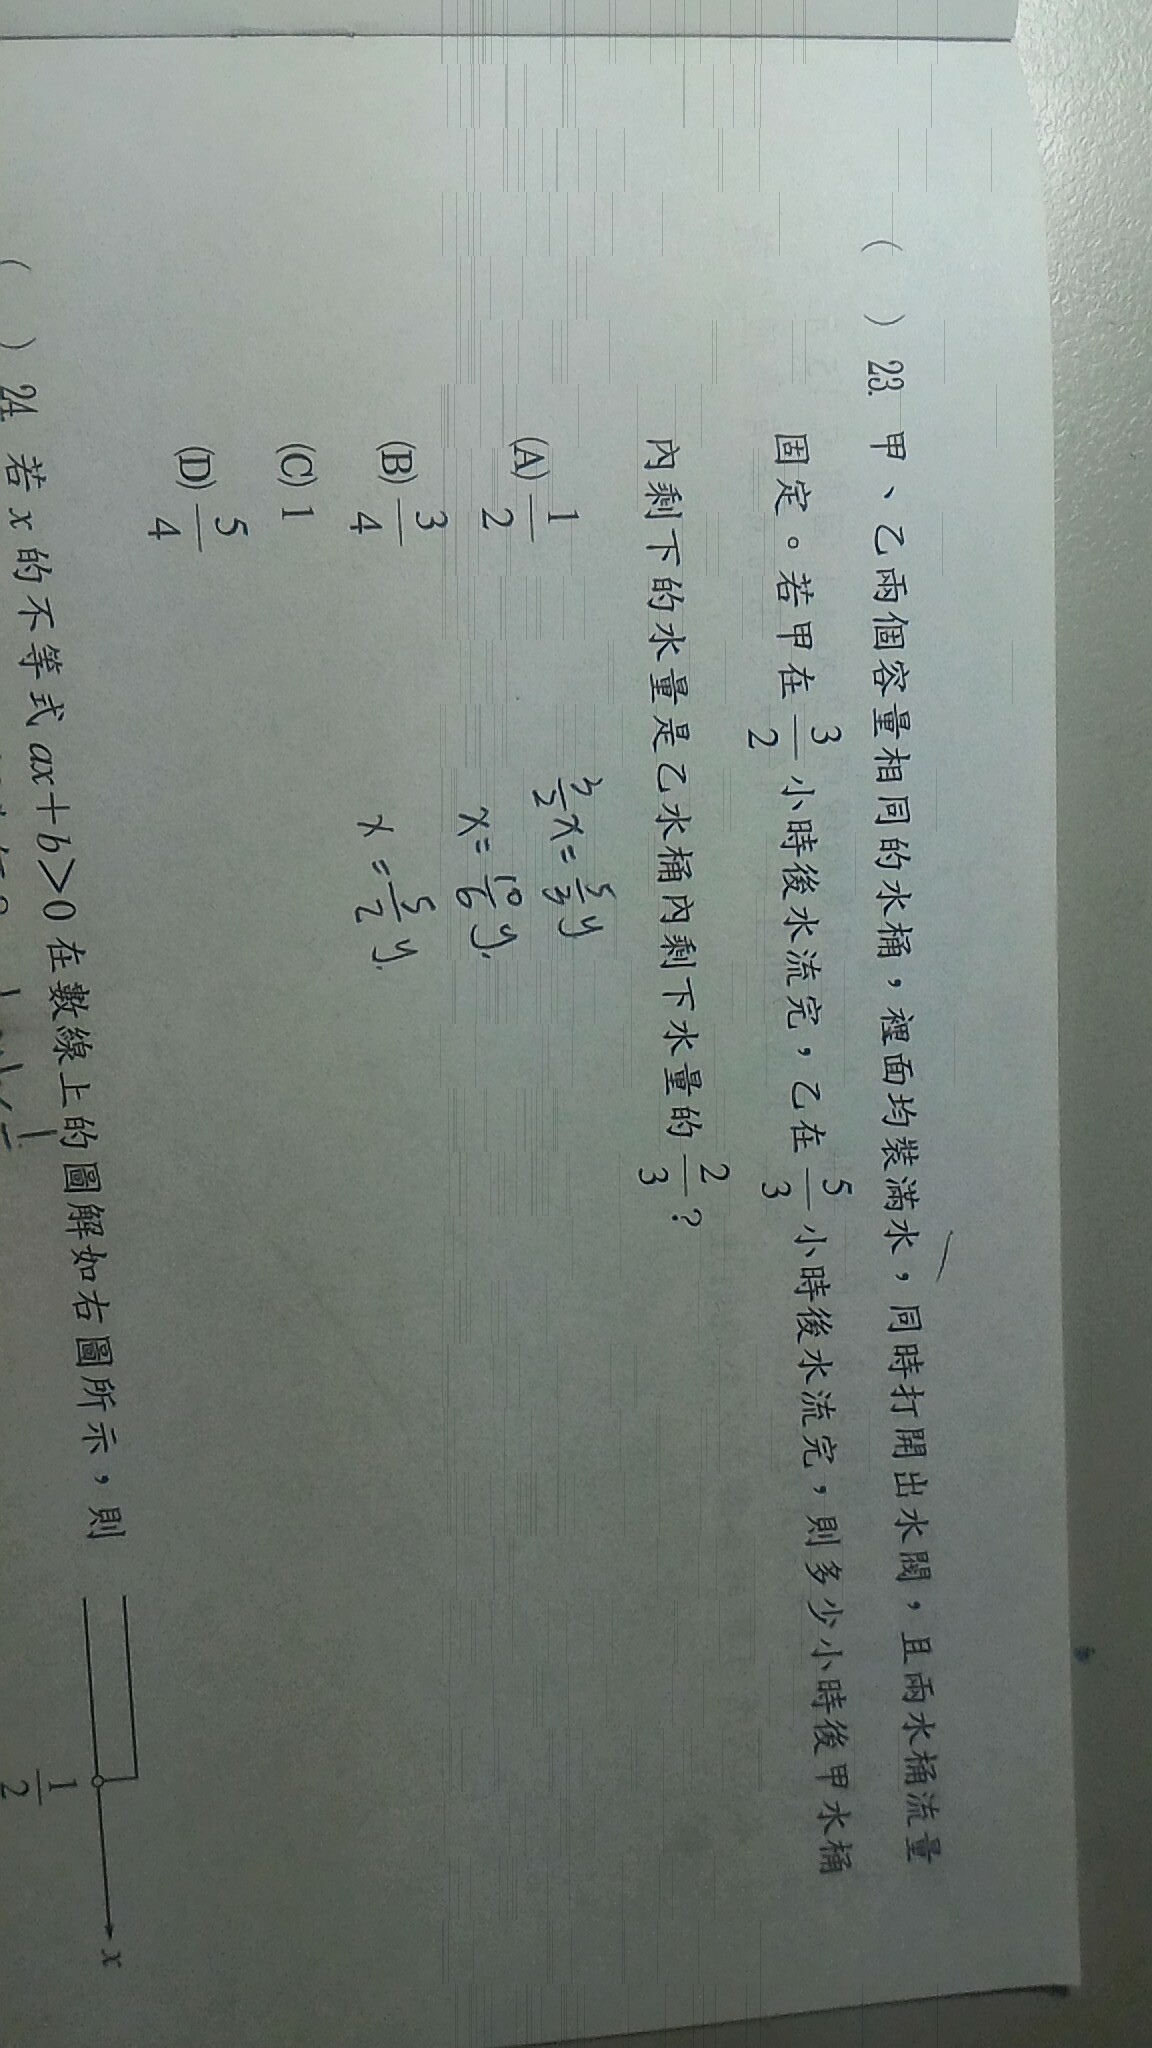 ( ) 23. 甲、乙兩個容量相同的水桶，裡面均裝滿水，同時打開出水閥，且兩水桶流量
固定。若甲在 3/2 小時後水流完，乙在 5/3 小時後水流完，則多少小時後甲水桶
內剩下的水量是乙水桶內剩下水量的 2/3 ?
(A) 1/2
(B) 3/4
(C) 1
(D) 5/4
3/2 x = 5/3 y
x = 10/6 y.
x = 5/2 y.
( ) 24. 若 x 的不等式 ax + b > 0 在數線上的圖解如右圖所示，則
1/2
x